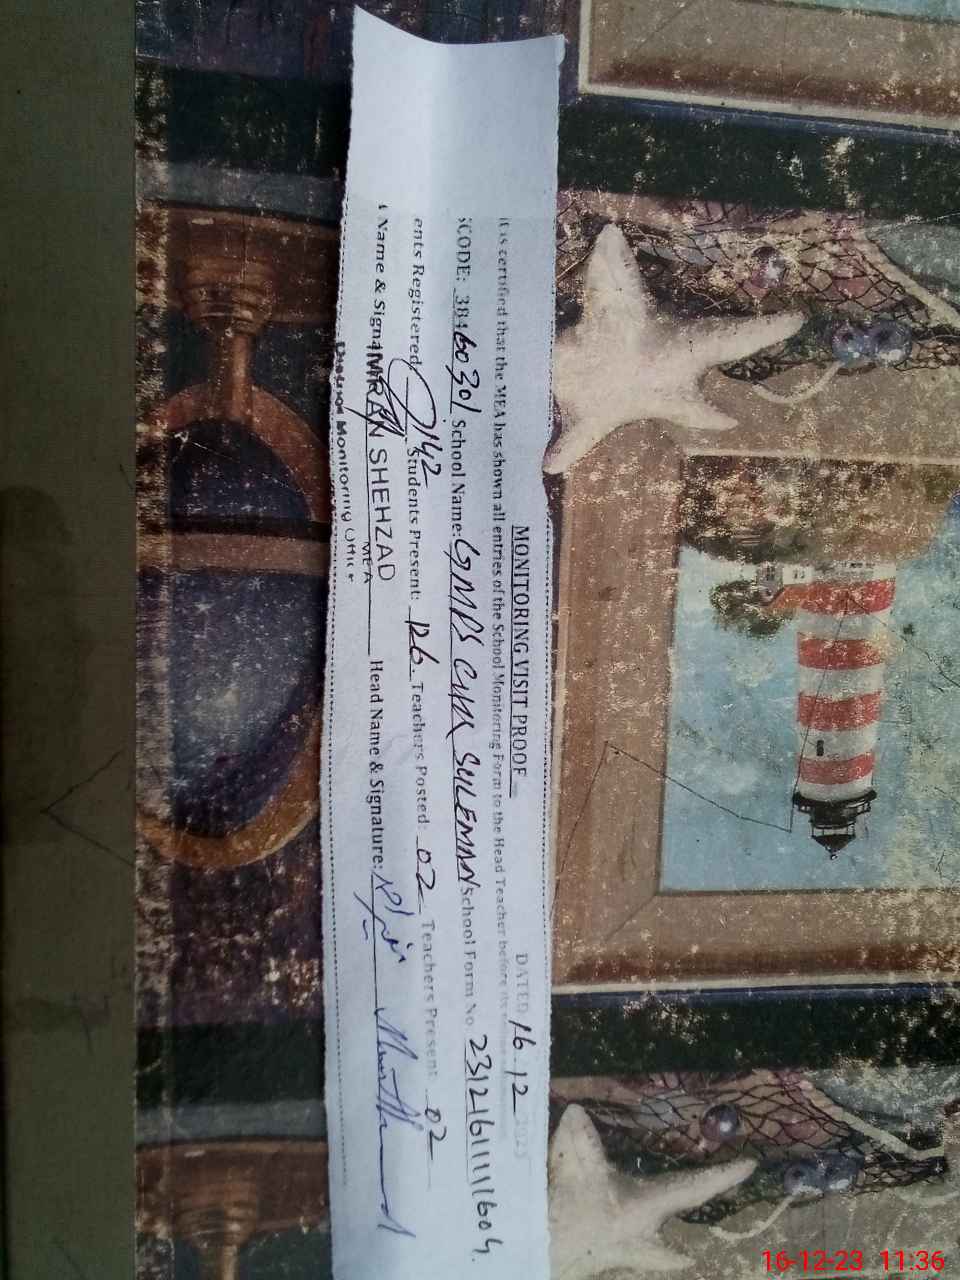 MONITORING VISIT PROOF
DATED 16-12 2023
It is certified that the MEA has shown all entries of the School Monitoring Form to the Head Teacher before its
SCODE: 38460301 School Name: GMPS CHAK SULEMAN School Form No. 23121611111604.
ents Registered 142 Students Present: 126. Teachers Posted: 02 Teachers Present: 02
Name & Signa IMRAN SHEHZAD Head Name & Signature:
MEA
District Monitoring Office
16-12-23 11:36